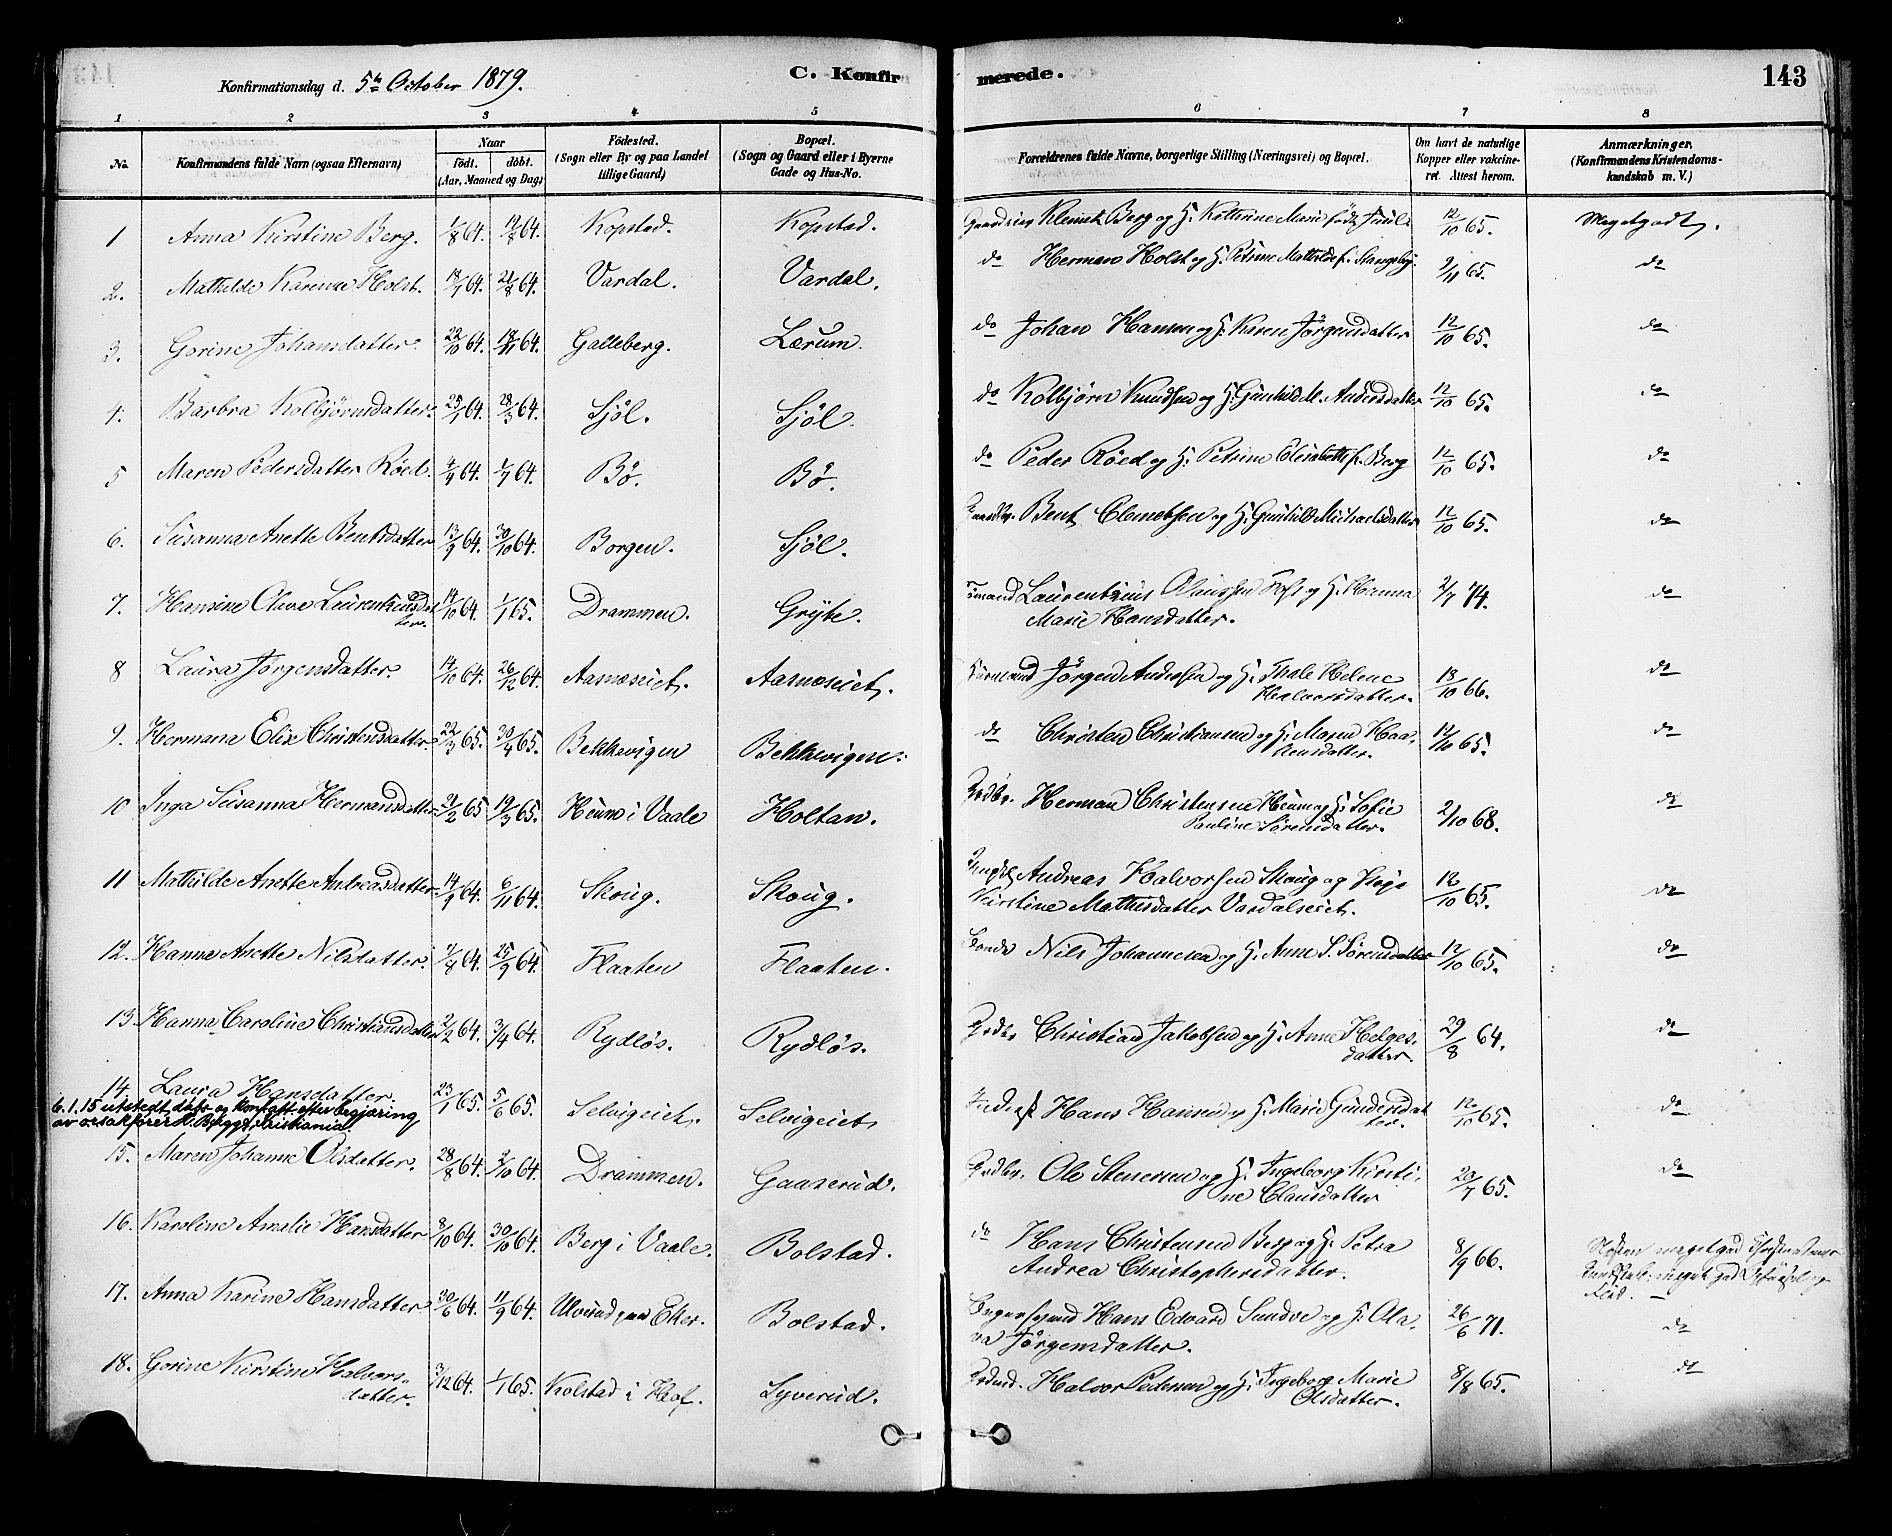 Konfirmationsdag d. 5te October 1879.
C. Konfir
merede.
143
1 2 3 4 5 6 7 8
No.
Konfirmandens fulde Navn (ogsaa Efternavn)
Naar
födt. döbt.
(Aar, Maaned og Dag)
Födested.
(Sogn eller By og paa Landet
tillige Gaard)
Bopæl.
(Sogn og Gaard eller i Byerne
Gade og Hus-No.
Forældrenes fulde Navne, borgerlige Stilling (Næringsvei) og Bopæl.
Om havt de naturlige
Kopper eller vakcine-
ret. Attest herom.
Anmærkninger.
(Konfirmandens Kristendoms-
kundskab m. V.)
1 Anna Kirstine Berg. 1/8 64. 14/8 64. Kopstad. Kopstad. Klemet Berg og H. Kathrine Marie født 12/10 65. Megetgodt.
2. Mathilde Karense Holst. 18/7 64. 21/8 64. Vardal. Vardal. do Herman Holst og H. Petrine Mathilde f. Stangeby 9/11 65. do
3. Gorine Johansdatter. 22/10 64. 64. Galleberg. Lærum. do Johan Hansen og H. Karen Jörgensdatter 12/10 65. do
4. Barbra Kolbjörnsdatter. 25/1 64. 28/3 64. Sjöl. Sjöl. do Kolbjörn Knudsen og H. Gunhild M. Andersdatter 12/10 65. do
5 Maren Pedersdatter Röed. 4/4 64. 1/7 64. Bö. Bö. do Peder Röed og H. Petrine Elisabeth f. Berg 12/10 65. do
6. Susanna Anette Bentsdatter 13/9 64. 30/10 64. Borgen. Sjöl. Bent Clemetsen og H. Gunhild Michaelsdatter 12/10 65. do
7. Hansine Olive Laurentziusdat
ter. 14/10 64. 1/1 65. Drammen. Gryte. Laurentzius Olaussen og H. Hanna
Marie Hansdatter. 2/7 74. do
8 Laura Jörgensdatter. 14/10 64. 26/12 64. Aasnæseiet. Aasnæseiet. Jörgen Andersen og H. Thale Helene
Halvorsdatter. 18/10 66. do
9. Hermana Elise Christensdatter 22/3 65. 30/4 65. Bekkevigen Bekkevigen. do Christen Christiansen og H. Maren Haa-
kensdatter. 12/10 65. do
10 Inga Susanna Hermansdatter 21/2 65 19/3 65. Heum i Vaale Holtan. Grdbr. Herman Christensen Heum og H. Sofie
Pauline Sørensdatter. 2/10 68. do
11 Mathilde Anette Andreasdatter 14/9 64. 6/11 64. Skoug. Skoug. Andreas Halvorsen Skoug og Pige
Kirstine Mathisdatter Vardalseiet. 12/10 65. do
12. Hanna Anette Nilsdatter. 7/8 64. 25/9 64. Flaaten Flaaten. Nils Johannesen og H. Anne S. Sörensdatter 12/10 65. do
13 Hanna Caroline Christiansdatter 2/2 64. 3/4 64. Rydlös. Rydlös. Grdbr Christian Jakobsen og H. Anne Helges-
datter. 29/8 64. do
14 Laura Hansdatter. 23/1 65. 5/6 65. Selvigeiet. Selvigeiet. Hans Hansen og H. Marie Gundersdat
ter. 12/10 65. do
6.1.15 utstedt daabs og konf.att. efter begjæring
av o.r.sakförer R. Bugge, Kristiania
15. Maren Johanne Olsdatter. 28/8 64. 2/10 64. Drammen. Gaaserud. Grdbr. Ole Stenersen og H. Ingeborg Kirsti-
ne Clausdatter 20/7 65. do
16. Karoline Amalie Hansdatter 8/10 64. 30/10 64. Berg i Vaale. Bolstad. do Hans Christensen Berg og H. Petra
Andrea Christophersdatter. 8/9 66.
17. Anna Karine Hansdatter 30/6 64. 11/9 64. Ulverud, paa Eker. Bolstad. Hans Edvard Sundve og H. Ola-
va Jörgensdatter. 26/6 71. do
18. Gorine Kirstine Halvors-
datter. 3/12 64. 1/1 65. Kolstad i Hof. Syverud. Halvor Pedersen og H. Ingeborg Marie
Olsdatter. 8/8 65. do